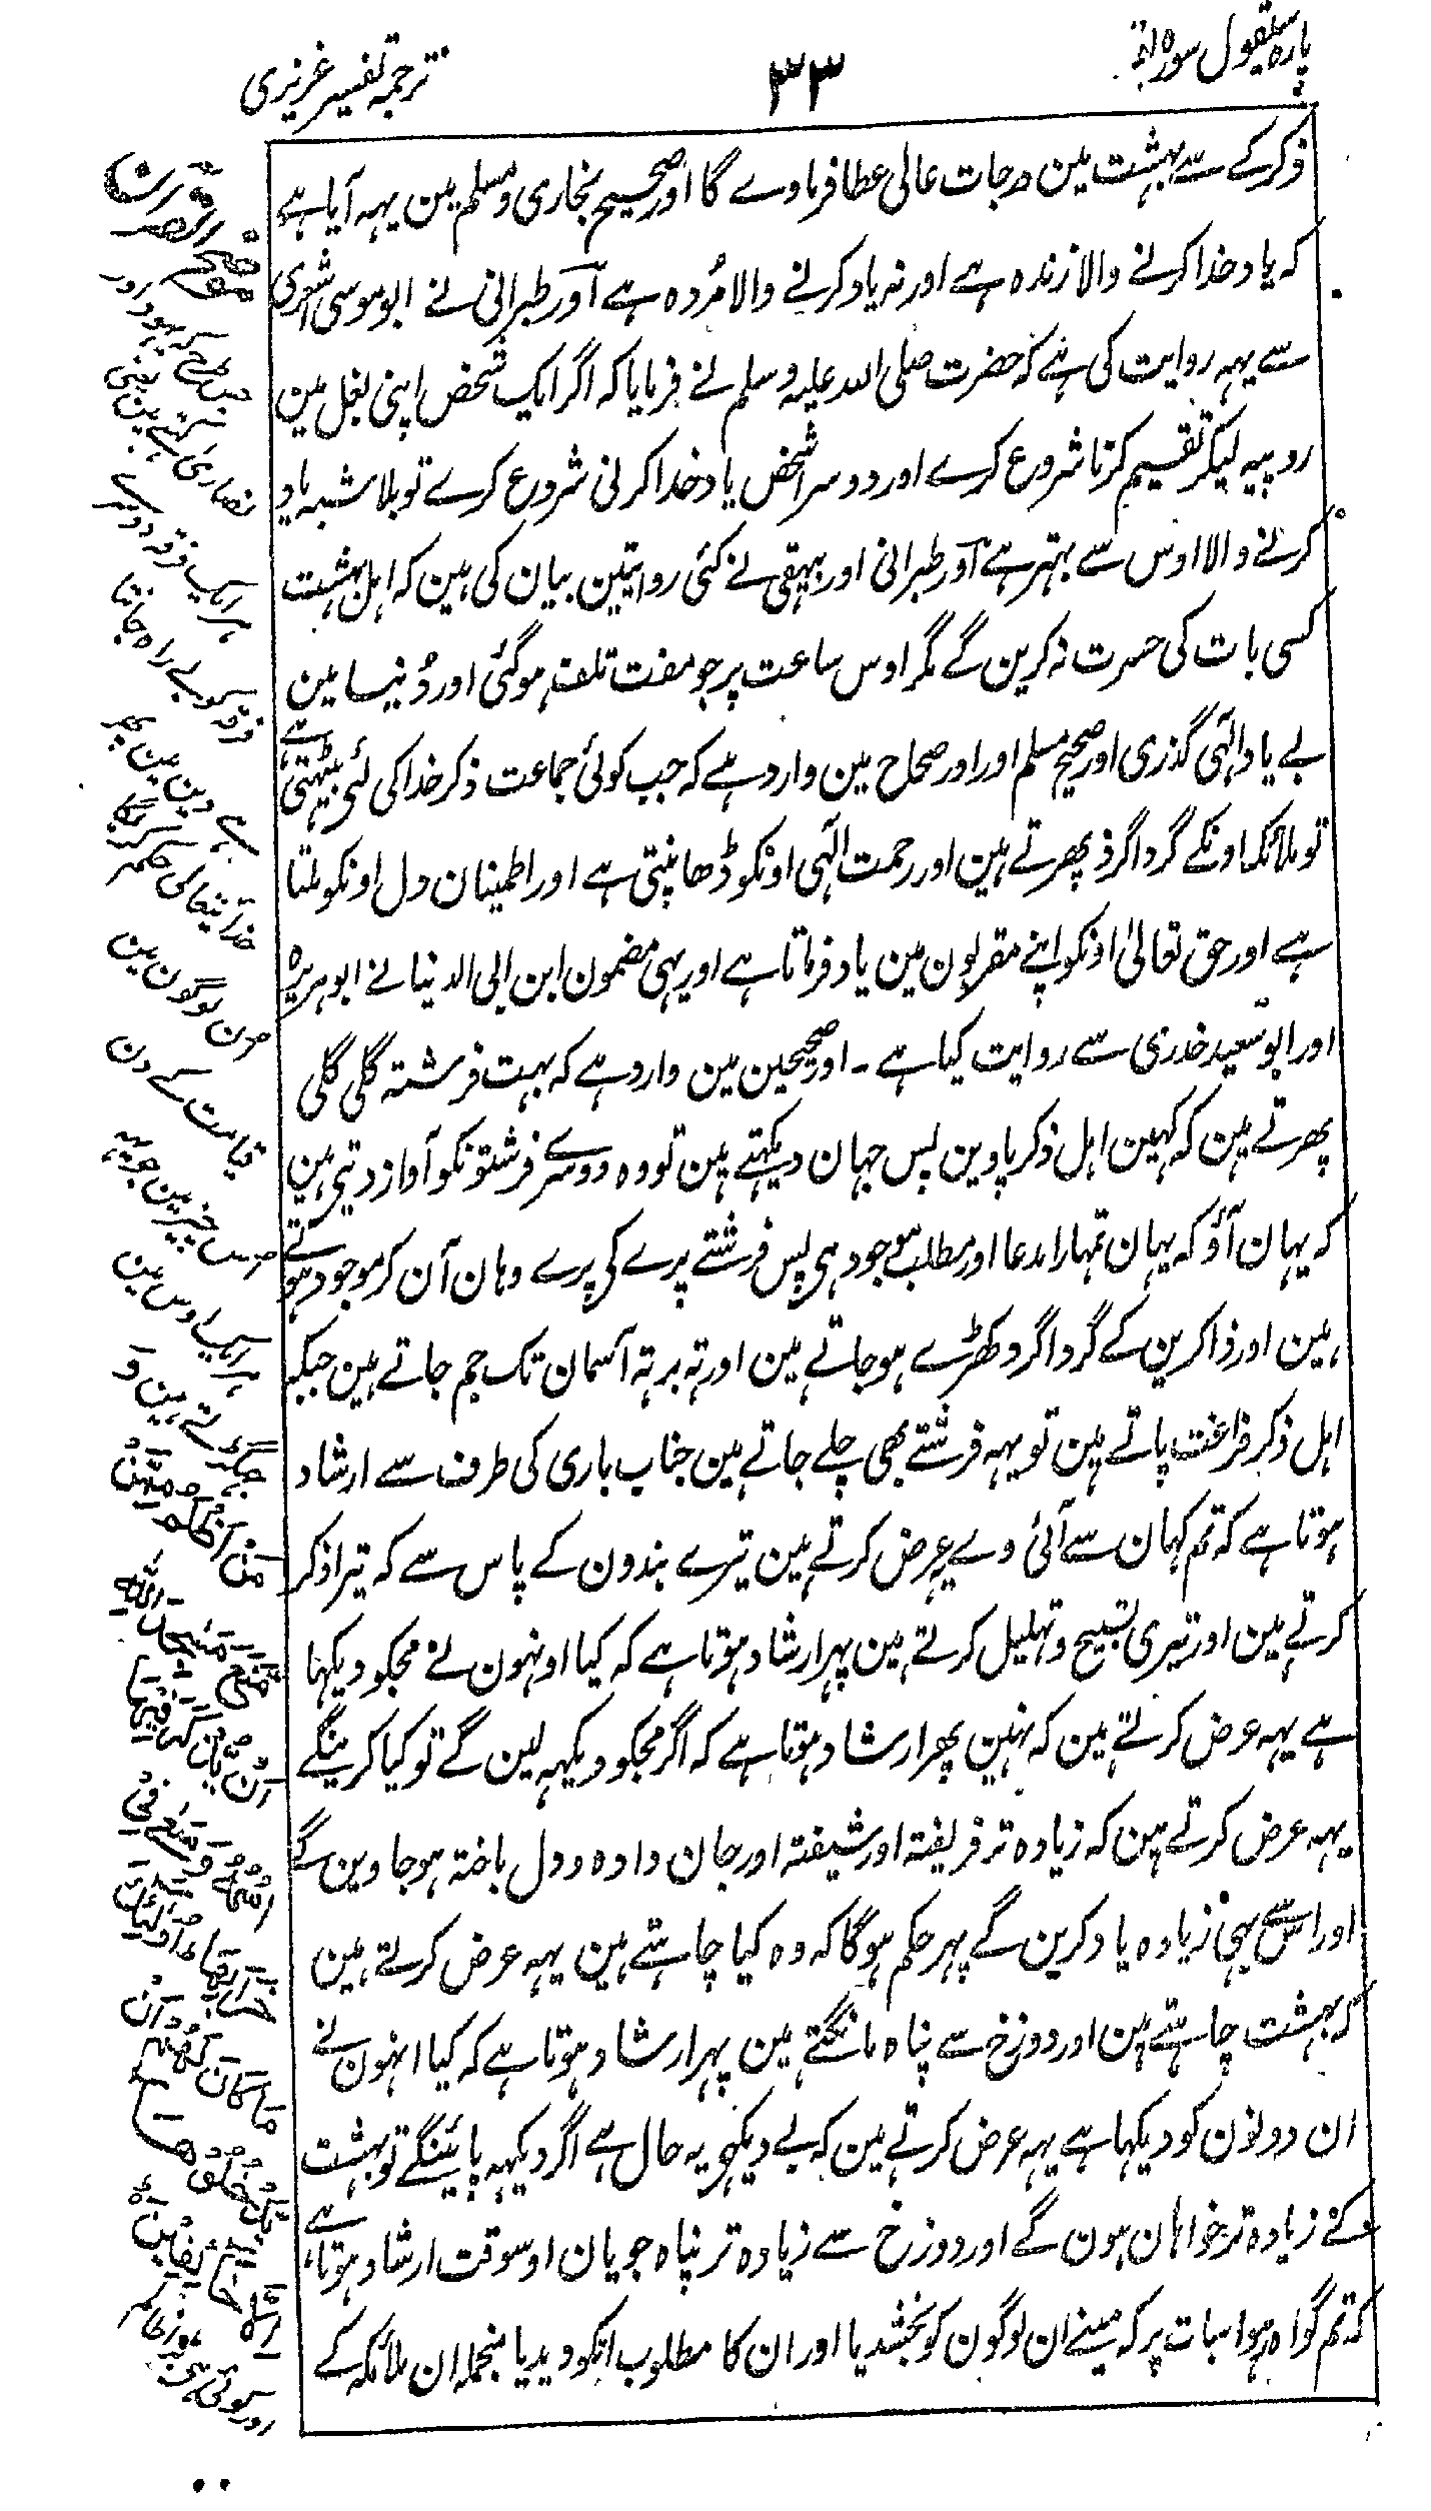 پارہ سیقول سورہ البقر
۳۳
ترجمہ تفسیر عزیزی
ذکر کے سے بہشت مین درجات عالی عطا فرماوے گا اور صحیح بخاری و مسلم مین یہہ آیا ہے
کہ یاد خدا کرنے والا زندہ ہے اور نہ یاد کرنے والا مُردہ ہے آور طبرانی نے ابو موسی اشعری
سے یہہ روایت کی ہے کہ حضرت صلی اللہ علیہ وسلم نے فرمایا کہ اگر ایک شخص اپنی بغل مین
روپیہ لیکر تقسیم کرنا شروع کرے اور دوسرا شخص یاد خدا کرنی شروع کرے تو بلا شبہ یاد
کرنے والا اوس سے بہتر ہے آور طبرانی اور بیہقی نے کئی روایتین بیان کی ہین کہ اہل بہشت
کسی بات کی حسرت نہ کرین گے مگر اوس ساعت پر جو مفت تلف ہو گئی اور دُنیا مین
بے یاد الٓہی گذری اور صحیح مسلم اور اور صحاح مین وارد ہے کہ جب کوئی جماعت ذکر خدا کی لئی بیٹہتی ہے
تو ملائکہ اونکے گرداگرد پھرتے ہین اور رحمت الٓہی اونکو ڈھانپتی ہے اور اطمینان دل اونکو ملتا
ہے اور حق تعالیٰ اونکو اپنے مقربون مین یاد فرماتا ہے اور یہی مضمون ابن ابی الدنیا نے ابو ہریرہ
اور ابو سعید خدری سے روایت کیا ہے ۔ اور صحیحین مین وارد ہے کہ بہت فرشتہ گلی گلی
پھرتے ہین کہ کہین اہل ذکر پاوین پس جہان دیکہتے ہین تو وہ دوسرے فرشتونکو آواز دیتی ہین
کہ یہان آؤ کہ یہان تمہارا مدعا اور مطلب موجود ہی پس فرشتے پرے کی پرے وہان آن کر موجود ہوتے
ہین اور ذاکرین کے گرداگرد کھڑے ہو جاتے ہین اور تہ بر تہ آسمان تک جم جاتے ہین جبکہ
اہل ذکر فراغت پاتے ہین تو یہہ فرشتے بھی چلے جاتے ہین جناب باری کی طرف سے ارشاد
ہوتا ہے کہ تم کہان سے آئی وے یہ عرض کرتے ہین تیرے بندون کے پاس سے کہ تیرا ذکر
کرتے ہین اور تیری تسبیح و تہلیل کرتے ہین پہر ارشاد ہوتا ہے کہ کیا اونہون نے مجکو دیکہا
ہے یہہ عرض کرتے ہین کہ نہین پھر ارشاد ہوتا ہے کہ اگر مجکو دیکہہ لین گے تو کیا کرینگے
یہہ عرض کرتے ہین کہ زیادہ تر فریفتہ اور شیفتہ اور جان دادہ و دل باختہ ہو جاوین گے
اور اس سے بہی زیادہ یاد کرین گے پہر حکم ہو گا کہ وہ کیا چاہتے ہین یہہ عرض کرتے ہین
کہ بہشت چاہتے ہین اور دوزخ سے پناہ مانگتے ہین پہر ارشاد ہوتا ہے کہ کیا انہون نے
ان دونون کو دیکہا ہے یہہ عرض کرتے ہین کہ بے دیکہی یہ حال ہے اگر دیکہہ پائینگے تو بہشت
کے زیادہ تر خواہان ہون گے اور دوزخ سے زیادہ تر پناہ جویان اوسوقت ارشاد ہوتا ہے
کہ تم گواہ رہو اسبات پر کہ مینے ان لوگون کو بخشدیا اور ان کا مطلوب انکو دیدیا منجملہ ان ملائکہ کے
موضح القرآن
جس طرح کہ یہود اور
نصاریٰ کہتے ہین یعنی
ہر ایک فرقہ دوسرے
فرقہ کو بے راہ جانتا
ہے دین مین پھر
خدا تعالیٰ حکم کریگا
ان لوگون مین
قیامت کے دن
جس چیز مین جو یہ
ہر ایک اوس مین
جھگڑتے ہین وَ
مَنْ اَظْلَمُ مِمَّنْ
مَّنَعَ مَسٰجِدَ اللّٰهِ
اَنْ یُّذْکَرَ فِیْهَا
اسْمُهٗ وَسَعٰی فِیْ
خَرَابِهَا اُولٰئِکَ
مَا کَانَ لَهُمْ اَنْ
یَّدْخُلُوْهَا
اِلَّا خَائِفِیْنَ
اور کوئی ہی بڑا ظالم